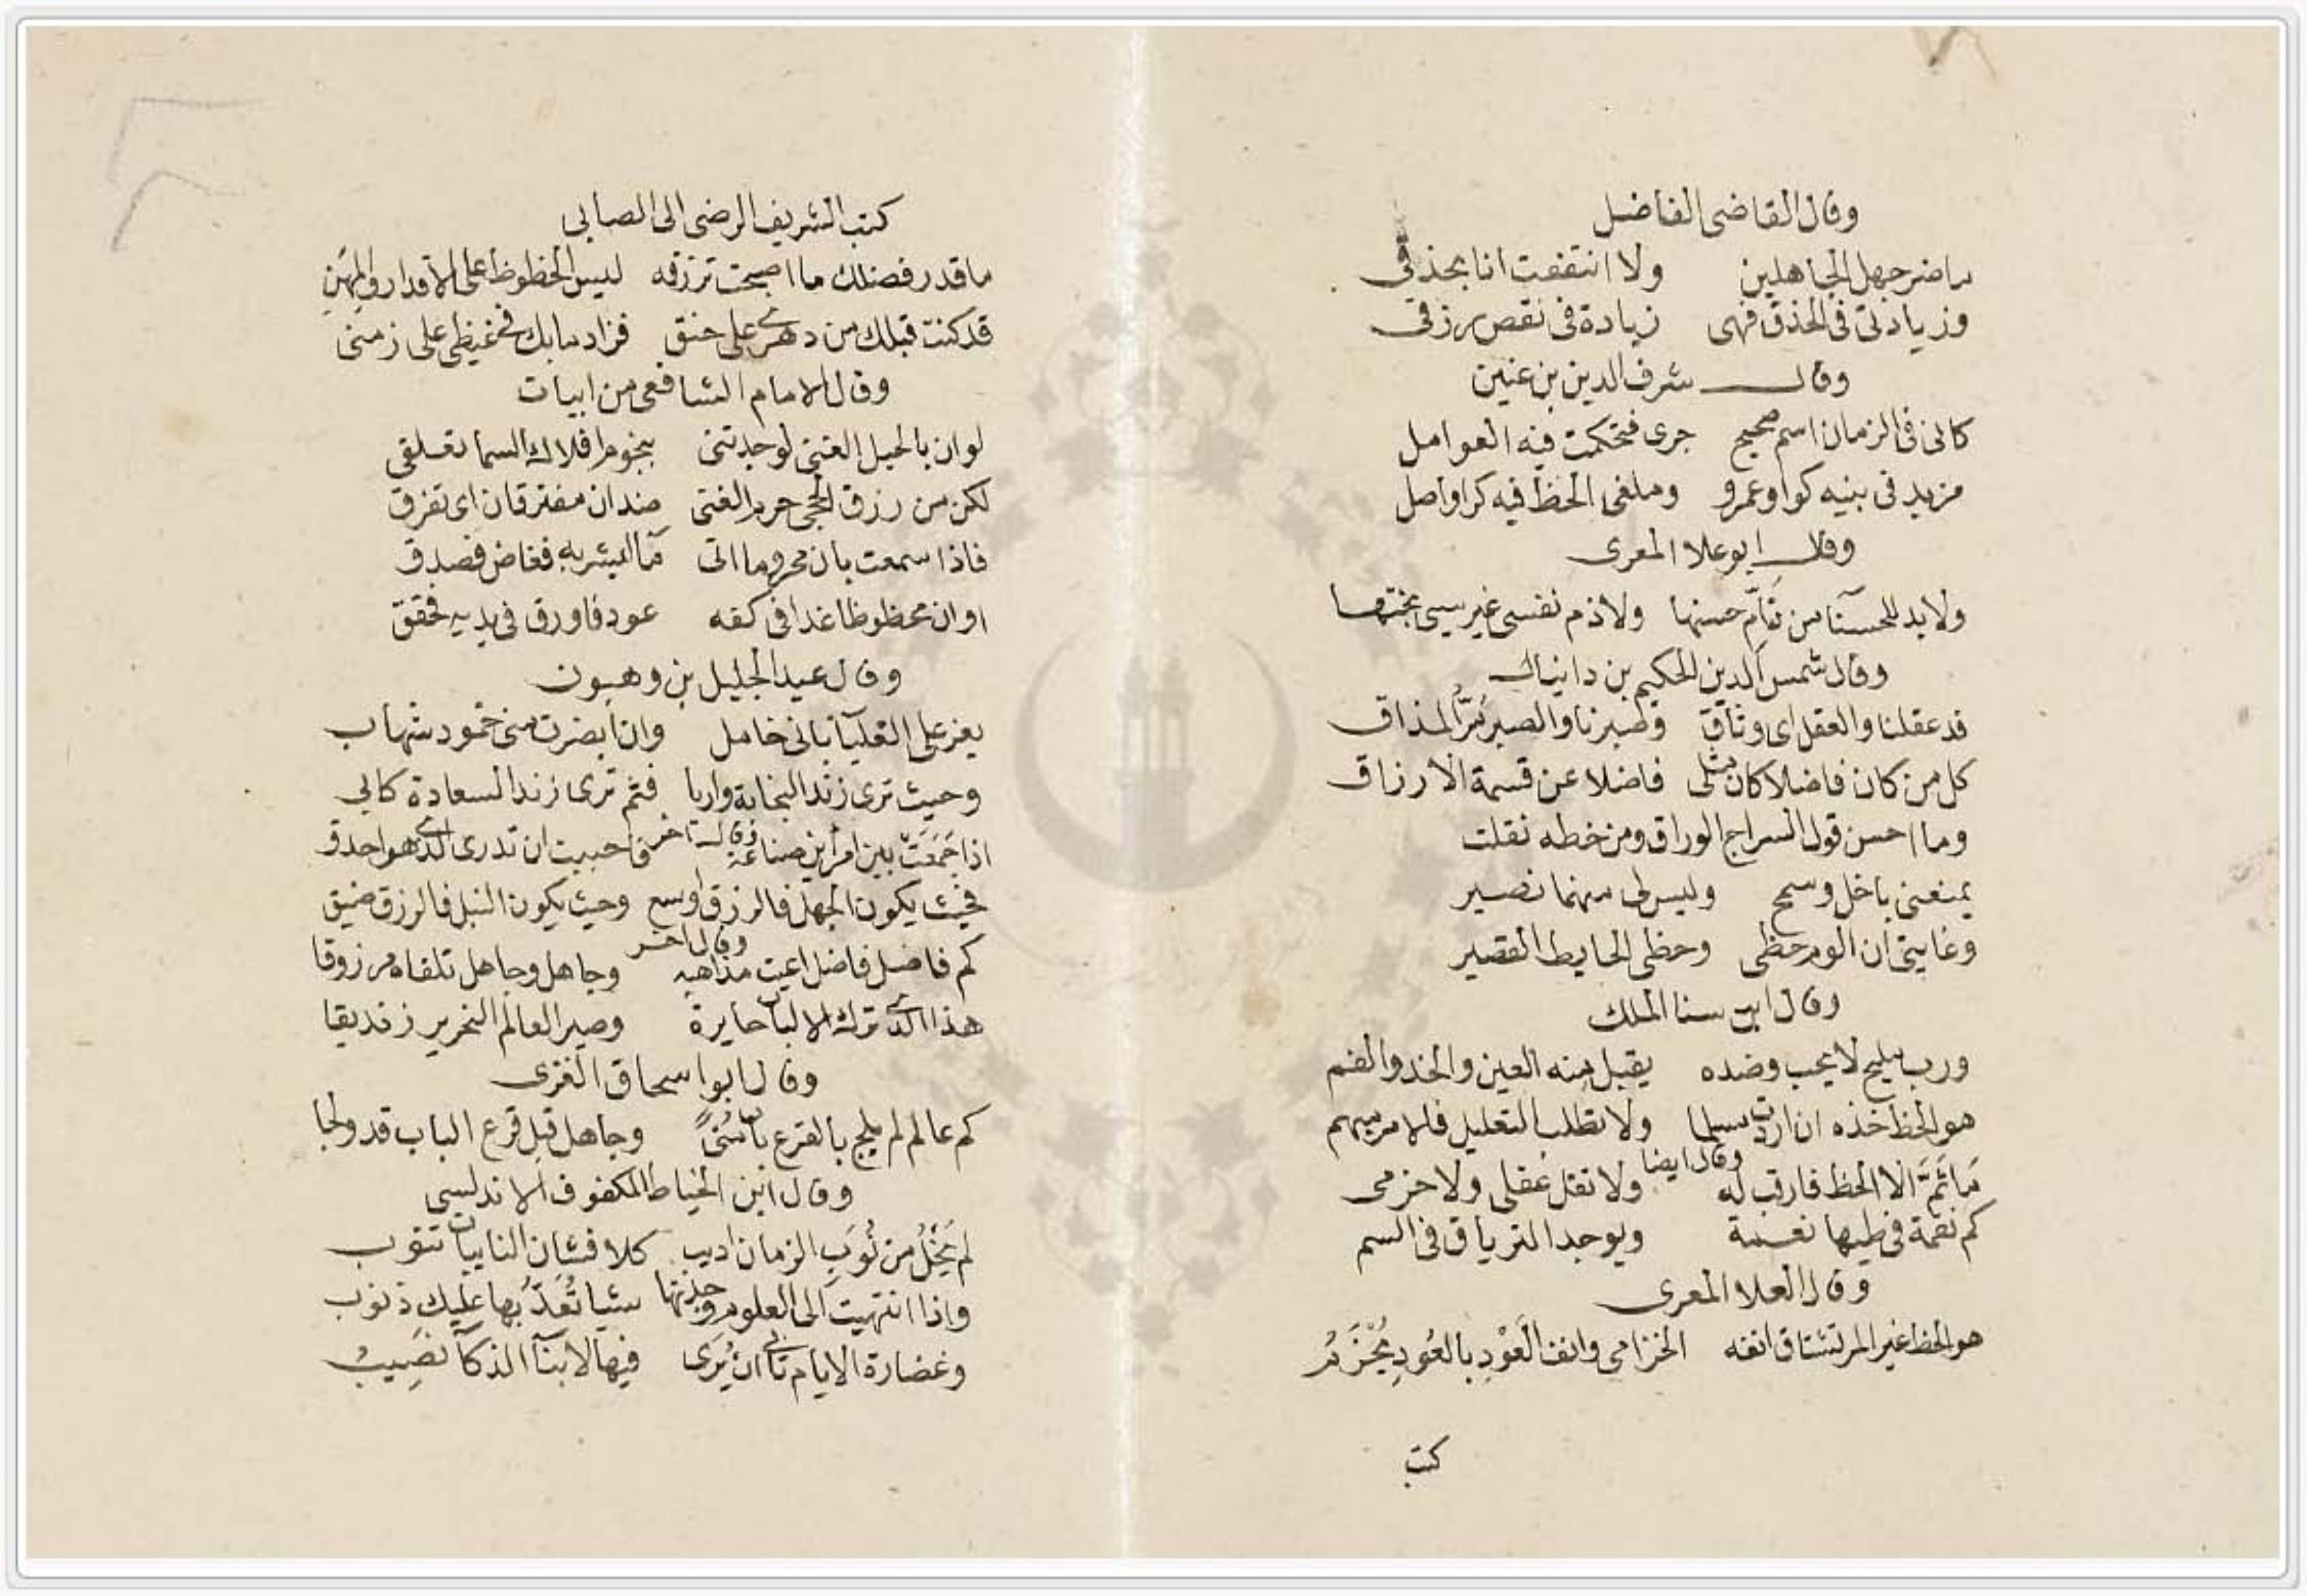 وقال القاضي الفاضل
ما ضر جهل الجاهلين ولا انتفعت انا بحذقي
وزيادتي في الحذق فهي زيادة في نقص رزقي
وقال شرف الدين بن عنين
كاني في الزمان اسم صحيح جرى فتحكمت فيه العوامل
مزيد في بنيه كواو عمرو وملغى الحظ فيه كراواصل
وقال ابو علا المعرى
ولابد للحسنآ من ذم نفسي غير سيى بختها
وقال شمس الدين الحكيم بن دانيال
قد عقلنا والعقل اى وثاق وصبرنا والصبر مُرّ المذاق
كل من كان فاضلا كان مثلى فاضلا عن قسمة الارزاق
وما احسن قول السراج الوراق ومن خطه نقلت
يمنعنى باخل وسمح وليس لى منهما نصير
وغايتى ان الوم حظى وحظى الحايط القصير
وقال ابن سنا الملك
ورب مليح لا يحب وضده يقبل منه العين والخد والفم
هو الحظ خذه ان اردت مسلما ولا تطلب التعليل فالامر مبهم
وقال ايضا
مَا ثَمَّ الا الحظ فارقب له ولا تقل عقلى ولا حزمى
كم نقمة في طيها نعمة ويوجد الترياق في السم
وقال العلا المعرى
هو الحظ غير المر تشتاق انفه الخزامى وانف العَوْدِ بالعُودِ يُخْزَمُ
كتب
كتب الشريف الرضى الى الصابى
ما قدر فضلك ما اصبحت ترزقه ليس الحظوظ على الاقدار والمِهَنِ
قد كنت قبلك من دهرى على حنق فزاد ما بك في غيظى على زمنى
وقال الامام الشافعى من ابيات
لو ان بالحيل الغنى لوجدتنى بنجوم افلاك السما تعلقى
لكن من رزق الحجى حرم الغنى ضدان مفترقان اى تفرق
فاذا سمعت بان محروما اتى مآ ليشربه فغاض فصدق
او ان محظوظا غدا في كفه عود فاورق في يديه فحقق
وقال عبد الجليل بن وهبون
يعز على العليآ بانى خامل وان ابصرت منى خمود شهاب
وحيث ترى زند النجابة واريا فثم ترى زند السعادة كابي
وقال اخر
اذا جَمَعَتْ بين امرأين صناعة فاحببت ان تدرى الذى هو احذق
فحيث يكون الجهل فالرزق اوسع وحيث يكون النبل فالرزق ضيق
وقال اخر
كم فاضل فاضل اعيت مذاهبه وجاهل وجاهل تلقاه مرزوقا
هذا الذى ترك الالباب حايرة وصير العالم النحرير زنديقا
وقال ابو اسحاق الغزى
كم عالم لم يلج بالقرع باب مُنىً وجاهل قبل قرع الباب قد ولجا
وقال ابن الخياط المكفوف الاندلسي
لم يَخْلُ من نُوَبِ الزمان اديب كلا فشان النايبات تنوب
واذا انتهيت الى العلوم وجدتها شيا تُعَدُّ بها عليك ذنوب
وغضارة الايام تابى ان يُرَى فيها لابنآ الذكآ نَصِيبُ